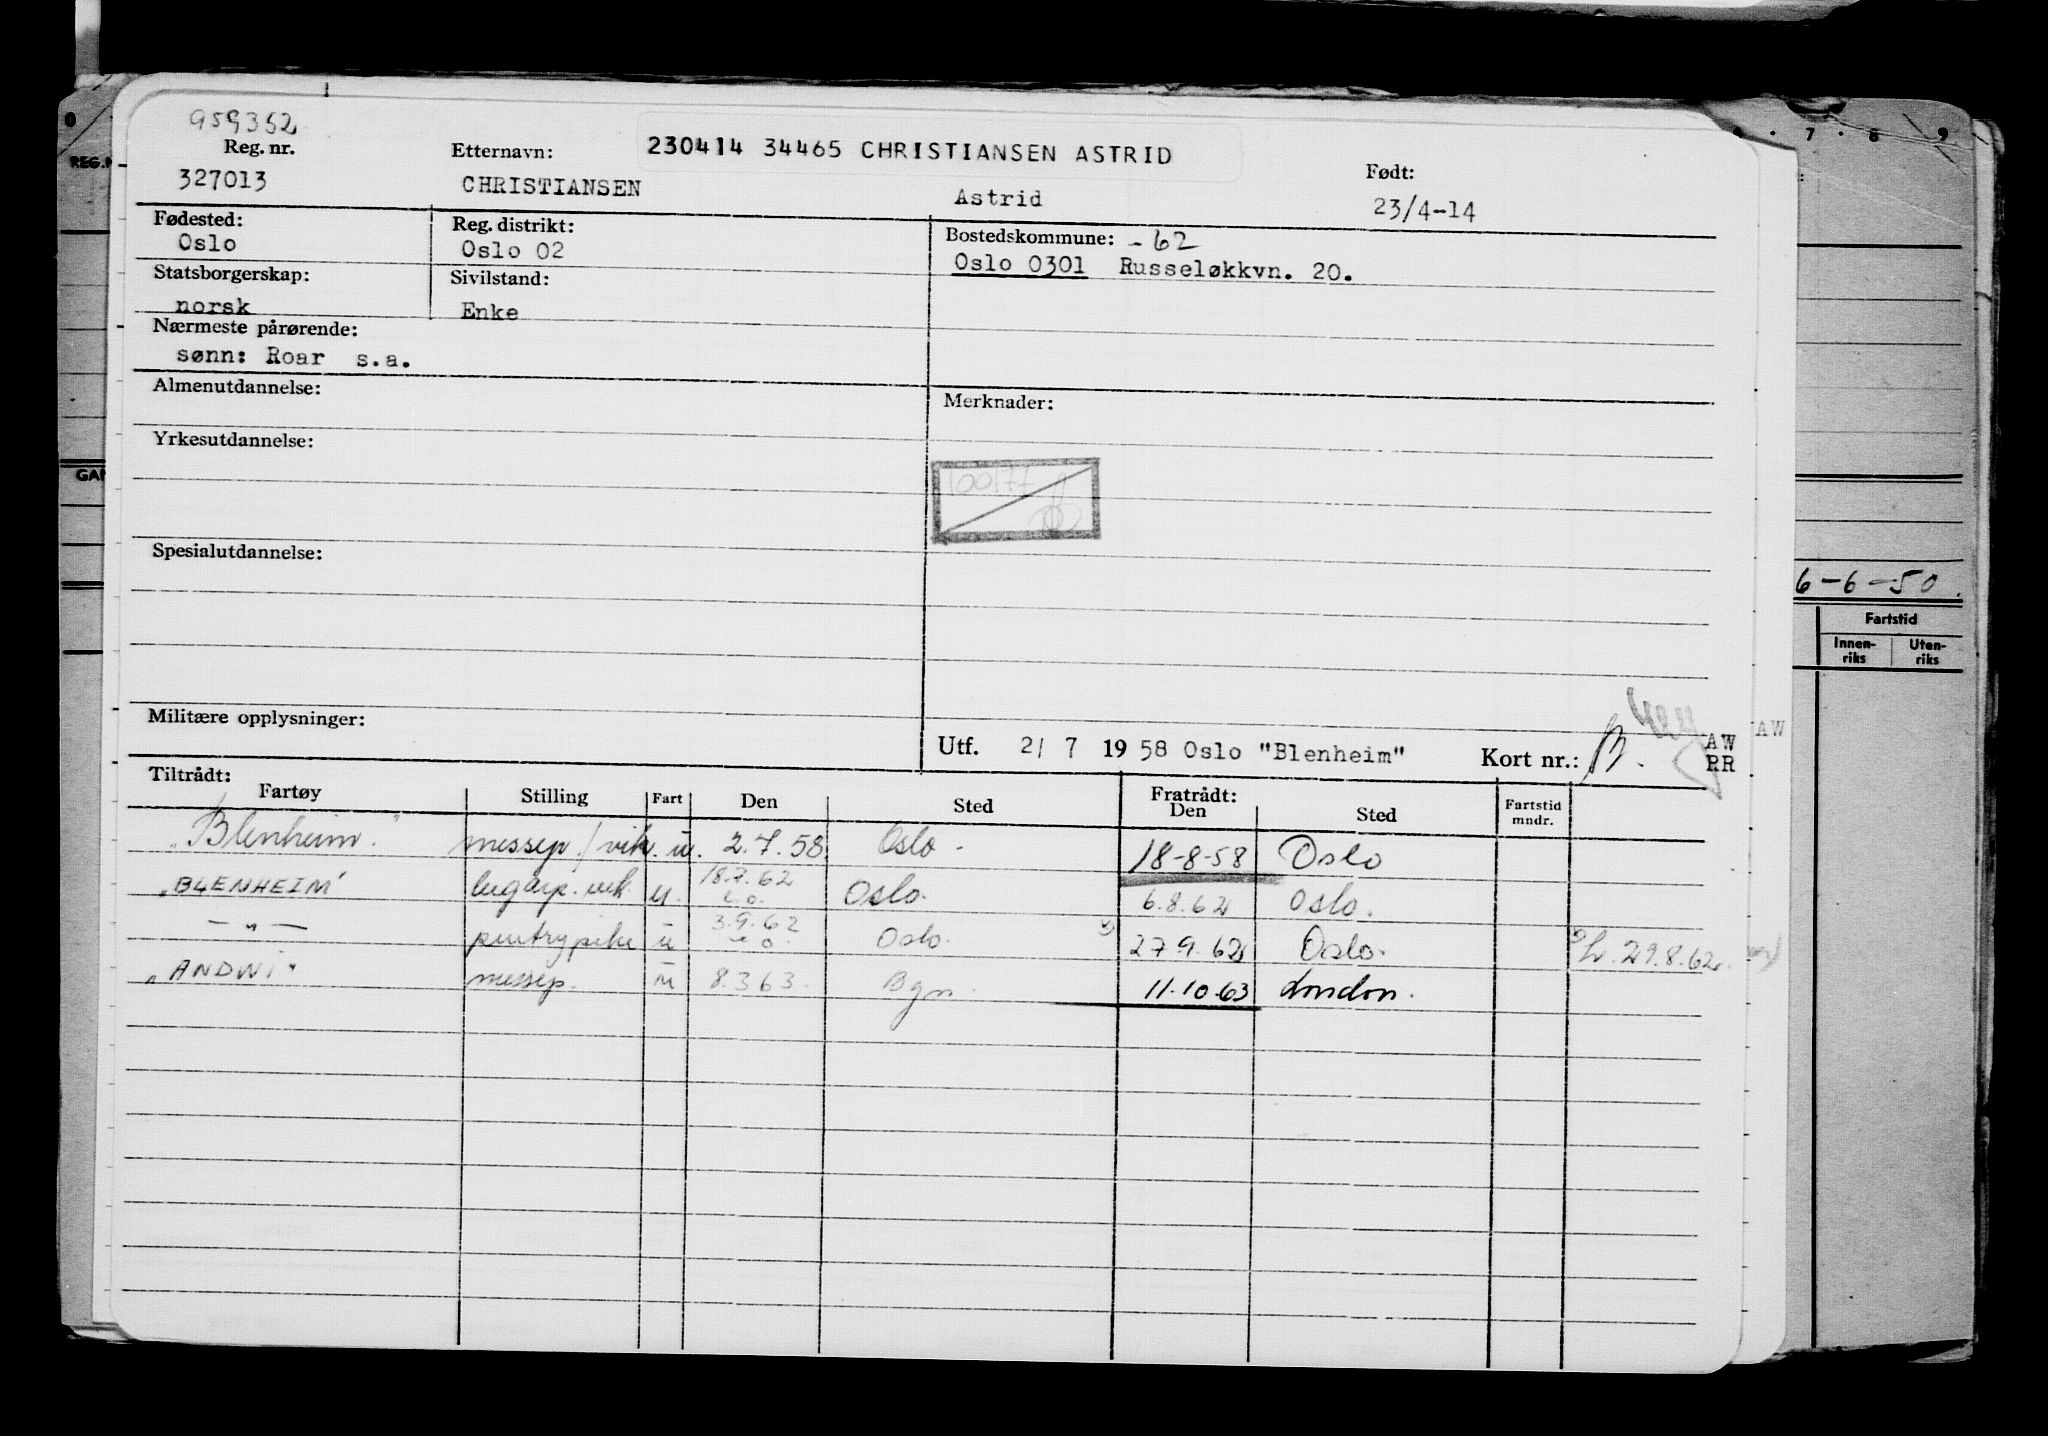 959362
Reg. nr. Etternavn: 230414 34465 CHRISTIANSEN ASTRID Født:
327013 CHRISTIANSEN Astrid 23/4-14
Fødested: Reg. distrikt: Bostedskommune: -62
Oslo Oslo 02 Oslo 0301 Russeløkkvn. 20.
Statsborgerskap: Sivilstand:
norsk Enke
Nærmeste pårørende:
sønn: Roar s.a.
Almenutdannelse: Merknader:
Yrkesutdannelse:
100177
Spesialutdannelse:
6-6-50.
Fartstid
Innen-riks Uten-riks
Militære opplysninger:
Utf. 2/ 7 19 58 Oslo "Blenheim" Kort nr.: B. AW AW
RR
Tiltrådt: Fratrådt:
Fartøy Stilling Fart Den Sted Den Sted Fartstid mndr.
"Blenheim." messep./vik. u. 2.7.58. Oslo. 18-8-58 Oslo
"BLENHEIM" lugarp. vik. u. 18.7.62 Oslo. 6.8.62 Oslo.
— " — pentrypike u 3.9.62 Oslo. 27 9. 62 Oslo. 29.8.62.
"ANDWI" messep. u 8.3 63. Bgn. 11.10.63 London.
REG.N
GAN
0 7 · 8 9